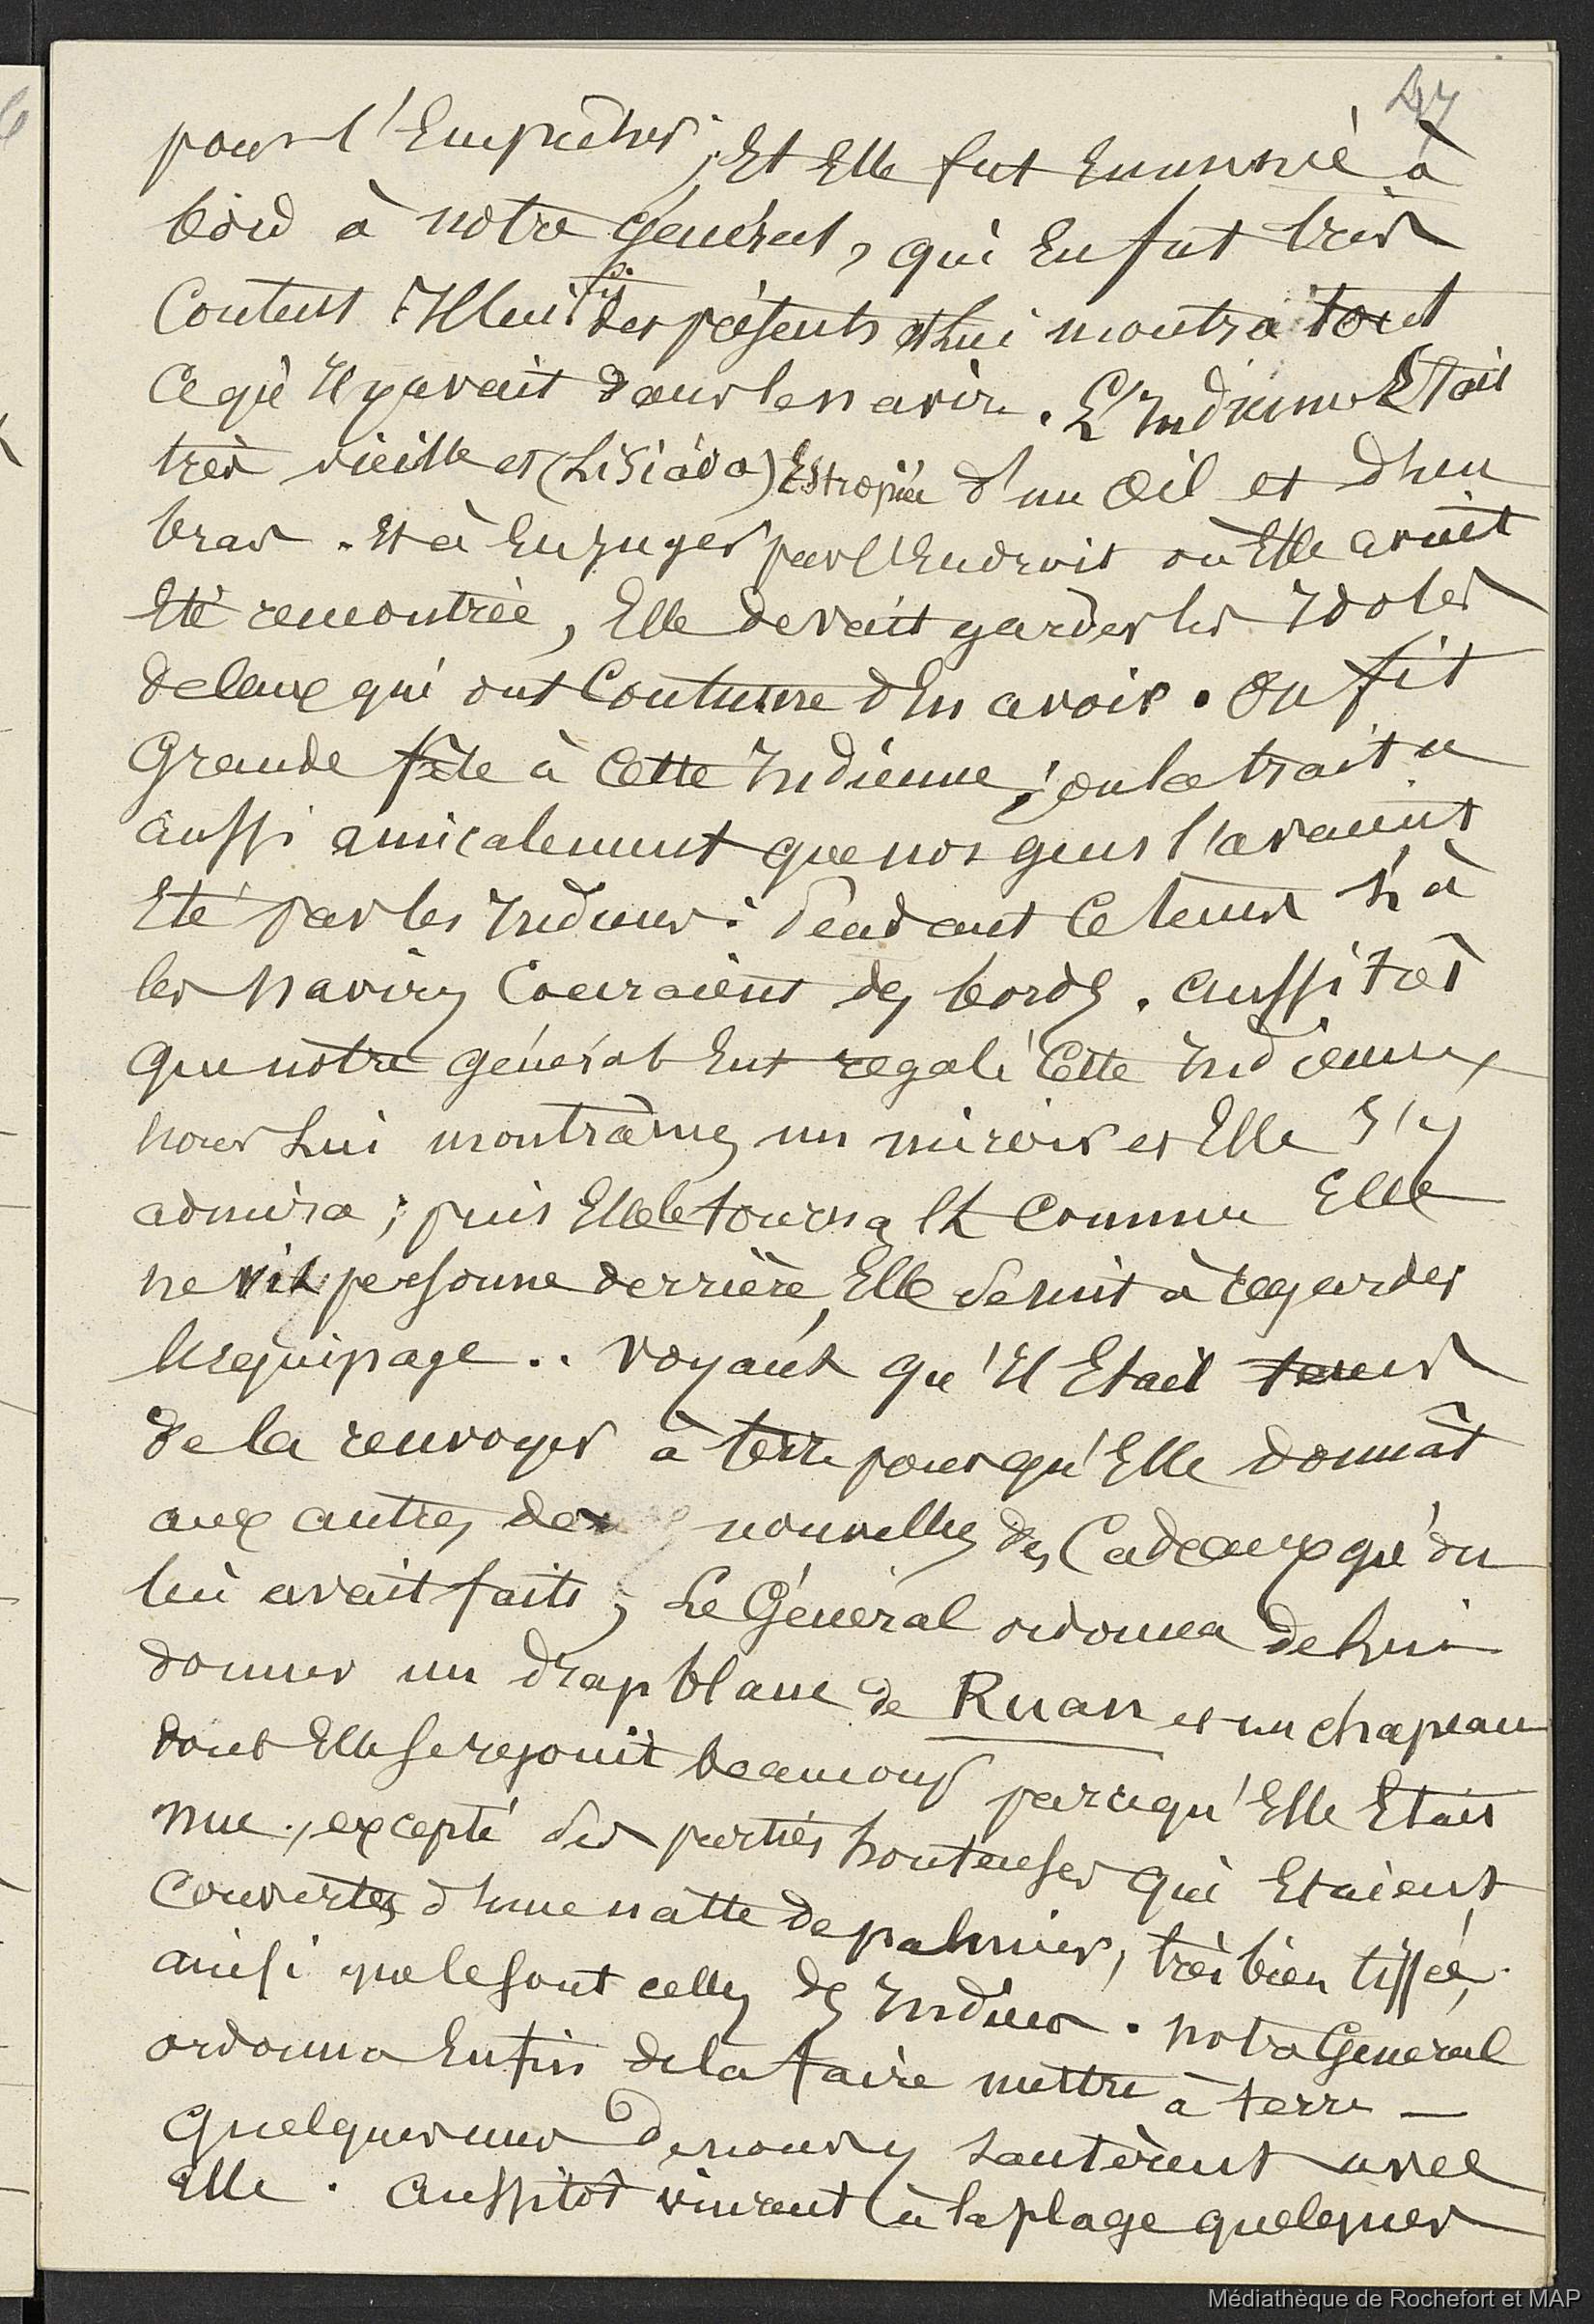 47
pour l'Empêcher ; Et Elle fut Emmenée à
bord à notre général, qui En fut très
Content Il lui fit des présents et Lui montra tout
Ce qu'Il y avait dans le navire. L'Indienne Etait
très vieille et (Lisiada) Estropiée d'un Œil et d'un
bras. Et à En juger par l'Endroit où Elle avait
Eté rencontrée, Elle devait garder les Idoles
de Ceux qui ont Coutume d'En avoir. On fit
Grande fête à Cette Indienne ; on la traita
aussi amicalement que nos gens l'avaient
Eté par les Indiens. Pendant Ce temps là
les Navires Couraient des bords. Aussitôt
que notre général Eut regalé Cette Indienne,
nous Lui montrâmes un miroir et Elle s'y
admira ; puis Elle le tourna Et Comme Elle
ne vit personne derrière, Elle se mit à regarder
l'équipage.. Voyant qu'Il Etait temps
de la renvoyer à terre pour qu'Elle donnât
aux autres des nouvelles des Cadeaux qu'on
lui avait faits, Le Général ordonna de Lui
donner un drap blanc de Ruan et un chapeau
dont Elle se rejouit beaucoup parcequ'Elle Etait
nue, excepté ses parties honteuses qui Etaient
Couvertes d'une natte de palmier, très bien tissée,
ainsi que le sont celles des Indiens. notre Général
ordonna Enfin de la faire mettre à terre —
Quelques uns de nous y sautèrent avec
Elle. Aussitôt vinrent à la plage quelques
Médiathèque de Rochefort et MAP